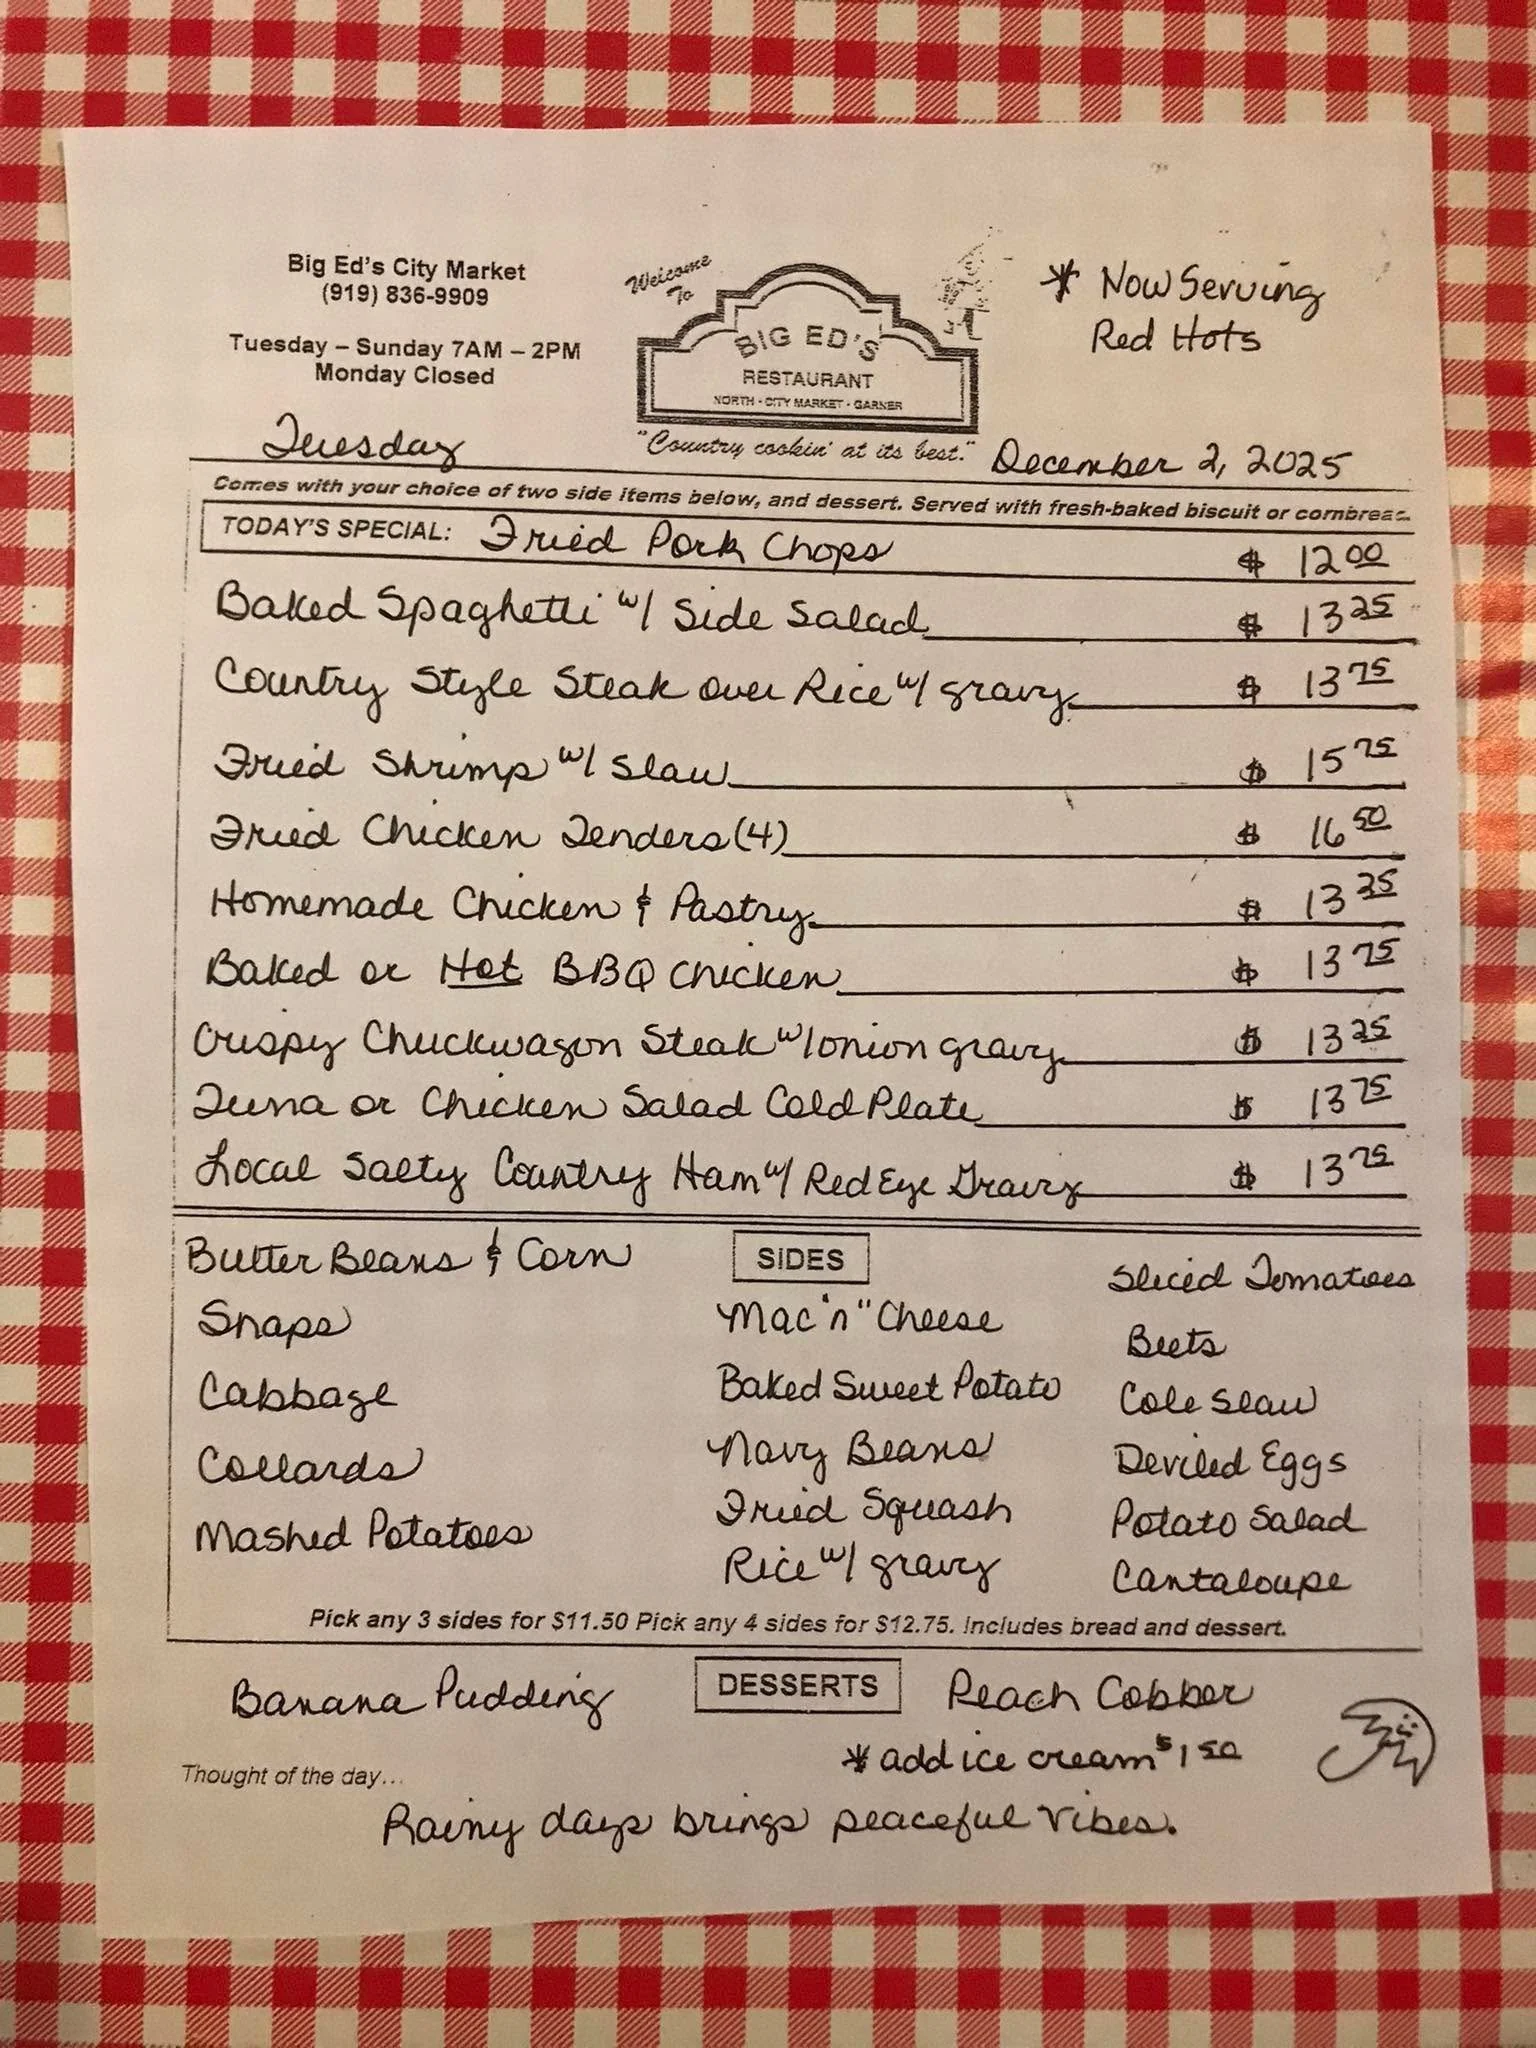 Big Ed's City Market
(919) 836-9909
Tuesday – Sunday 7AM – 2PM
Monday Closed
Welcome
To
BIG ED'S
RESTAURANT
NORTH - CITY MARKET - GARNER
"Country cookin' at its best."
* Now Serving
Red Hots
Tuesday
December 2, 2025
Comes with your choice of two side items below, and dessert. Served with fresh-baked biscuit or cornbread.
TODAY'S SPECIAL: Fried Pork Chops $ 12 00
Baked Spaghetti w/ Side Salad $ 13 25
Country Style Steak over Rice w/ gravy $ 13 75
Fried Shrimp w/ Slaw $ 15 75
Fried Chicken Tenders (4) $ 16 50
Homemade Chicken & Pastry $ 13 25
Baked or Hot BBQ Chicken $ 13 75
Crispy Chuckwagon Steak w/ onion gravy $ 13 25
Tuna or Chicken Salad Cold Plate $ 13 75
Local Salty Country Ham w/ Red Eye Gravy $ 13 75
SIDES
Butter Beans & Corn
Snaps
Cabbage
Collards
Mashed Potatoes
Mac "n" Cheese
Baked Sweet Potato
Navy Beans
Fried Squash
Rice w/ gravy
Sliced Tomatoes
Beets
Cole Slaw
Deviled Eggs
Potato Salad
Cantaloupe
Pick any 3 sides for $11.50 Pick any 4 sides for $12.75. Includes bread and dessert.
DESSERTS
Banana Pudding
Peach Cobbler
* add ice cream $1 50
Thought of the day...
Rainy days brings peaceful vibes.